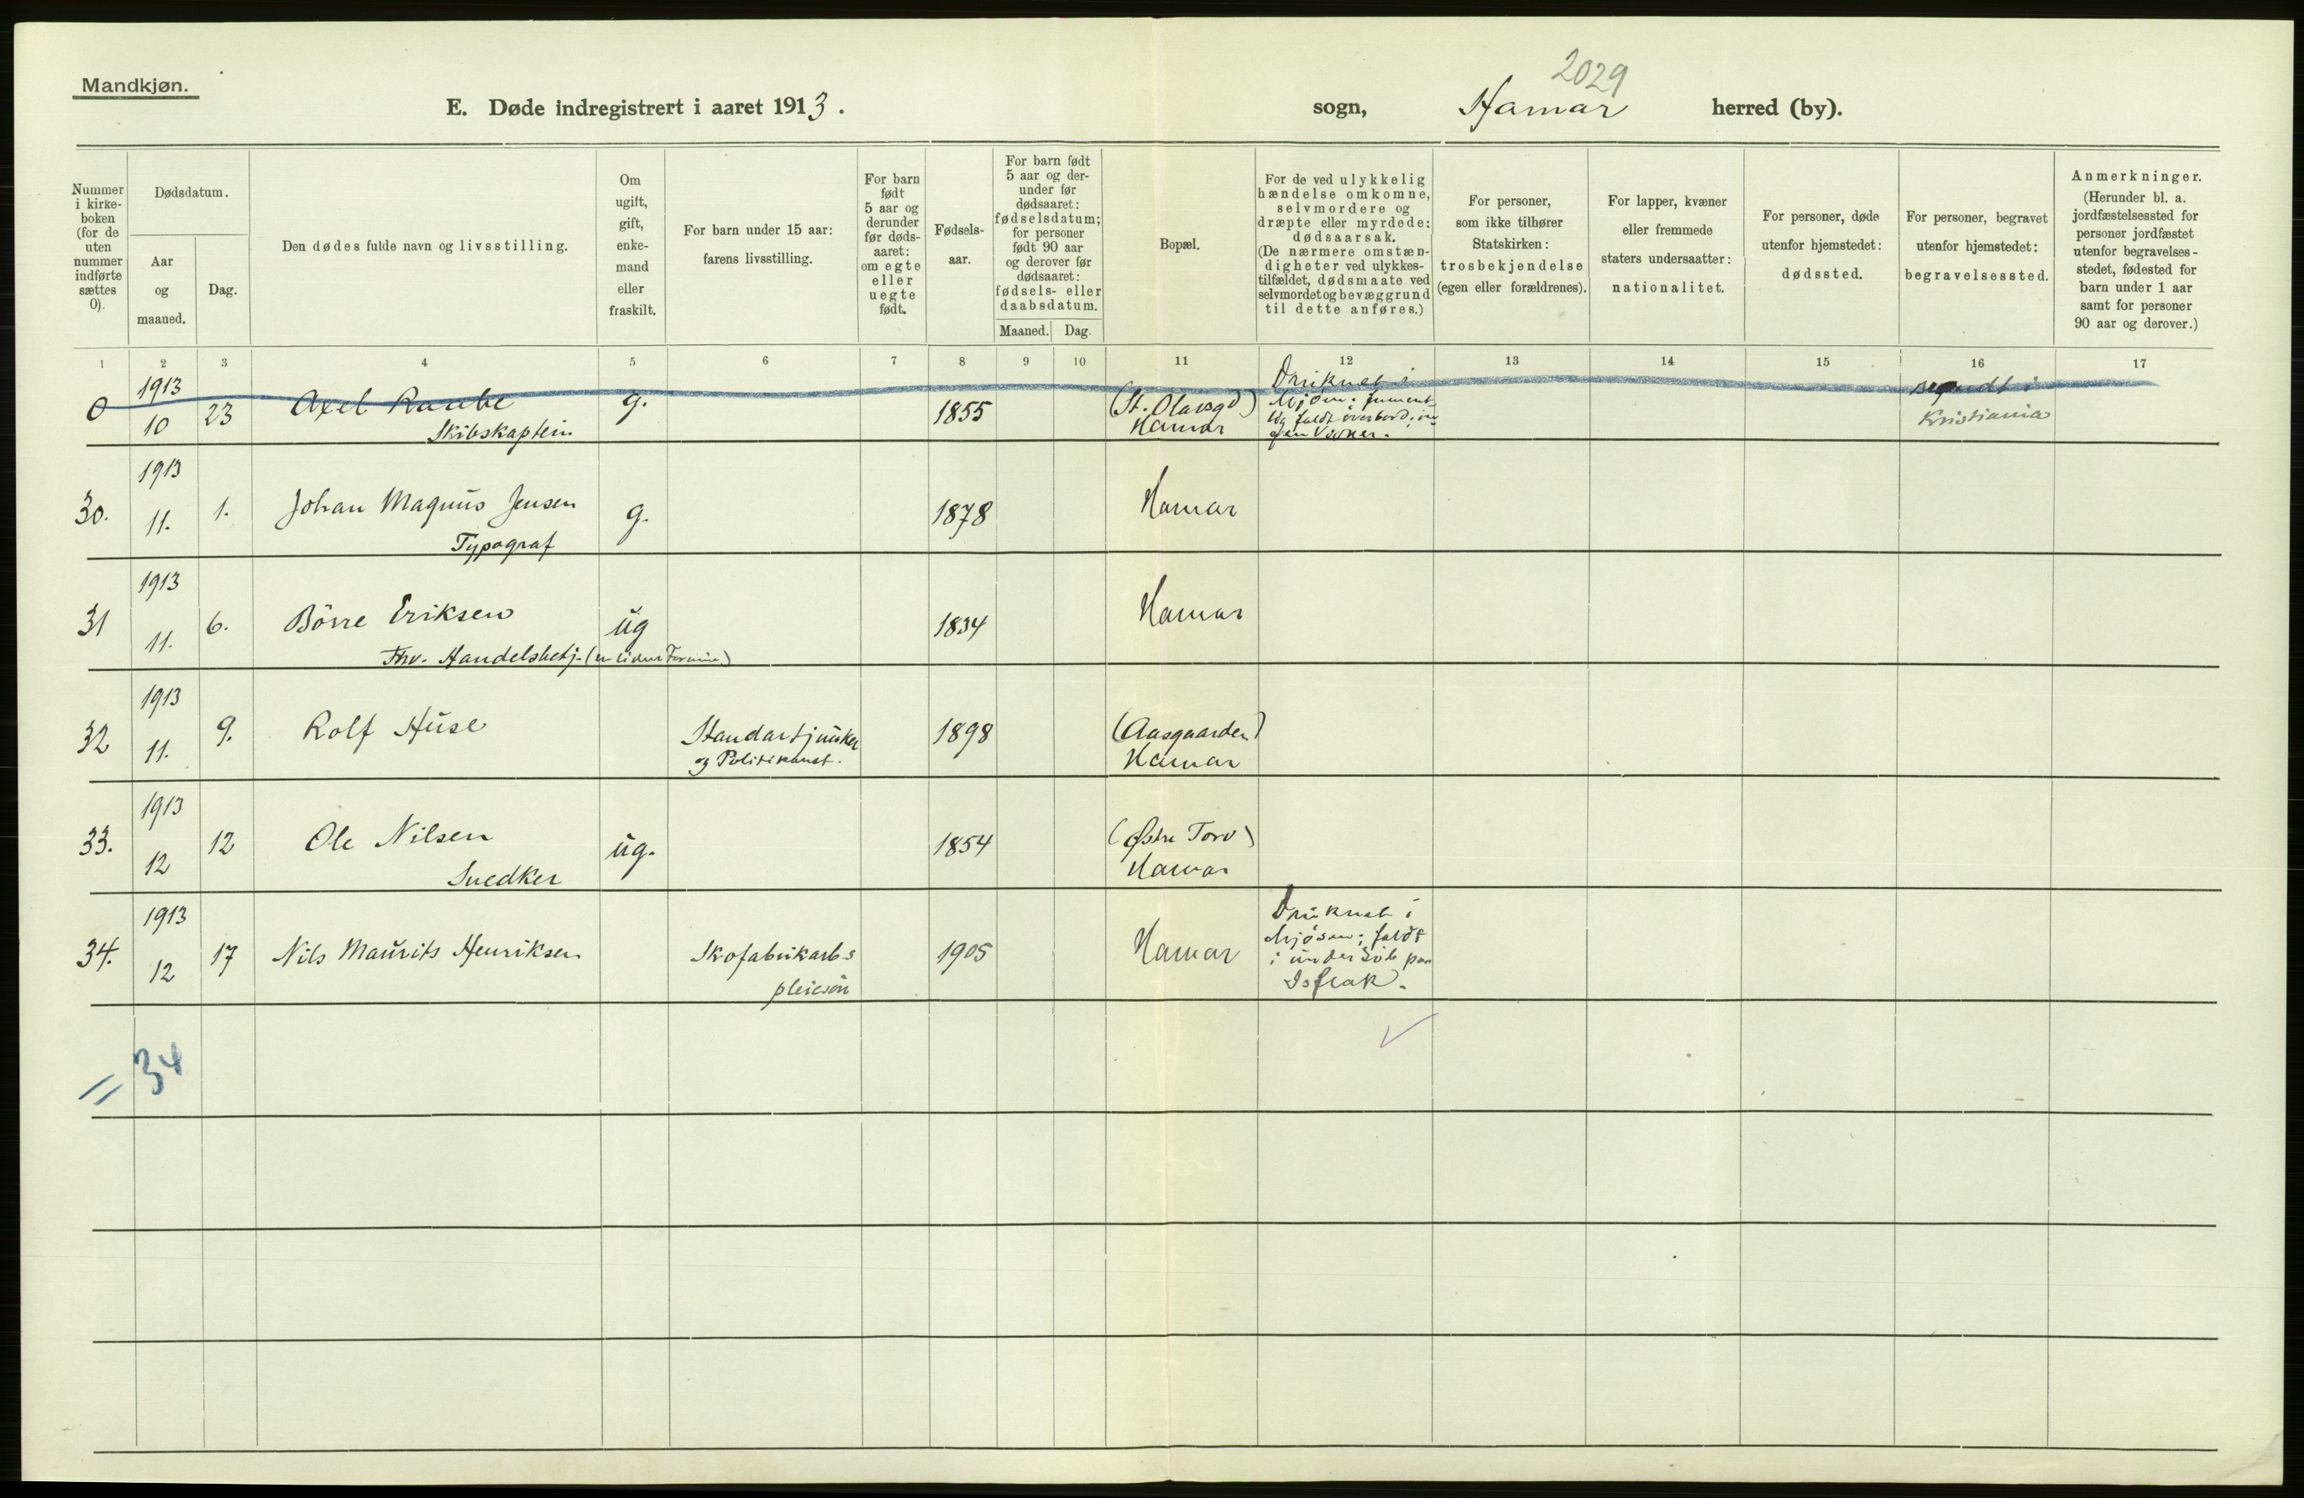 Mandkjøn.
2029
E. Døde indregistrert i aaret 1913.
sogn, Hamar herred (by).
Nummer
i kirke-
boken
(for de
uten
nummer
indførte
sættes
0).
Dødsdatum.
Aar
og
maaned.
Dag.
Den dødes fulde navn og livsstilling.
Om
ugift,
gift,
enke-
mand
eller
fraskilt.
For barn under 15 aar:
farens livsstilling.
For barn
født
5 aar og
derunder
før døds-
aaret:
om egte
eller
uegte
født.
Fødsels-
aar.
For barn født
5 aar og der-
under før
dødsaaret:
fødselsdatum;
for personer
født 90 aar
og derover før
dødsaaret:
fødsels- eller
daabsdatum.
Maaned. Dag.
Bopæl.
For de ved ulykkelig
hændelse omkomne,
selvmordere og
dræpte eller myrdede:
dødsaarsak.
(De nærmere omstæn-
digheter ved ulykkes-
tilfældet, dødsmaate ved
selvmordet og bevæggrund
til dette anføres.)
For personer,
som ikke tilhører
Statskirken:
trosbekjendelse
(egen eller forældrenes).
For lapper, kvæner
eller fremmede
staters undersaatter:
nationalitet.
For personer, døde
utenfor hjemstedet:
dødssted.
For personer, begravet
utenfor hjemstedet:
begravelsessted.
Anmerkninger.
(Herunder bl. a.
jordfæstelsessted for
personer jordfæstet
utenfor begravelses-
stedet, fødested for
barn under 1 aar
samt for personer
90 aar og derover.)
1 2 3 4 5 6 7 8 9 10 11 12 13 14 15 16 17
0
1913
10
23
Axel Raabe
Skibskaptein
g.
1855
(St. Olavsgd)
Hamar
Druknet i
Mjøsen.
faldt overbord; in-
gen Vidner.
Begravet i
Kristiania
30.
1913
11.
1.
Johan Magnus Jensen
Typograf
g.
1878
Hamar
31
1913
11.
6.
Börre Eriksen
Fhv. Handelsbetj.
ug
1834
Hamar
32
1913
11.
9.
Rolf Huse
Standartjunker
og Politikonst.
1898
(Aasgaarden)
Hamar
33.
1913
12
12
Ole Nilsen
Snedker
ug.
1854
(Østre Torv)
Hamar
34.
1913
12
17
Nils Maurits Henriksen
Skofabrikarb.s
pleiesøn
1905
Hamar
Druknet i
Mjøsen; faldt
i under paa
Isflak.
= 34